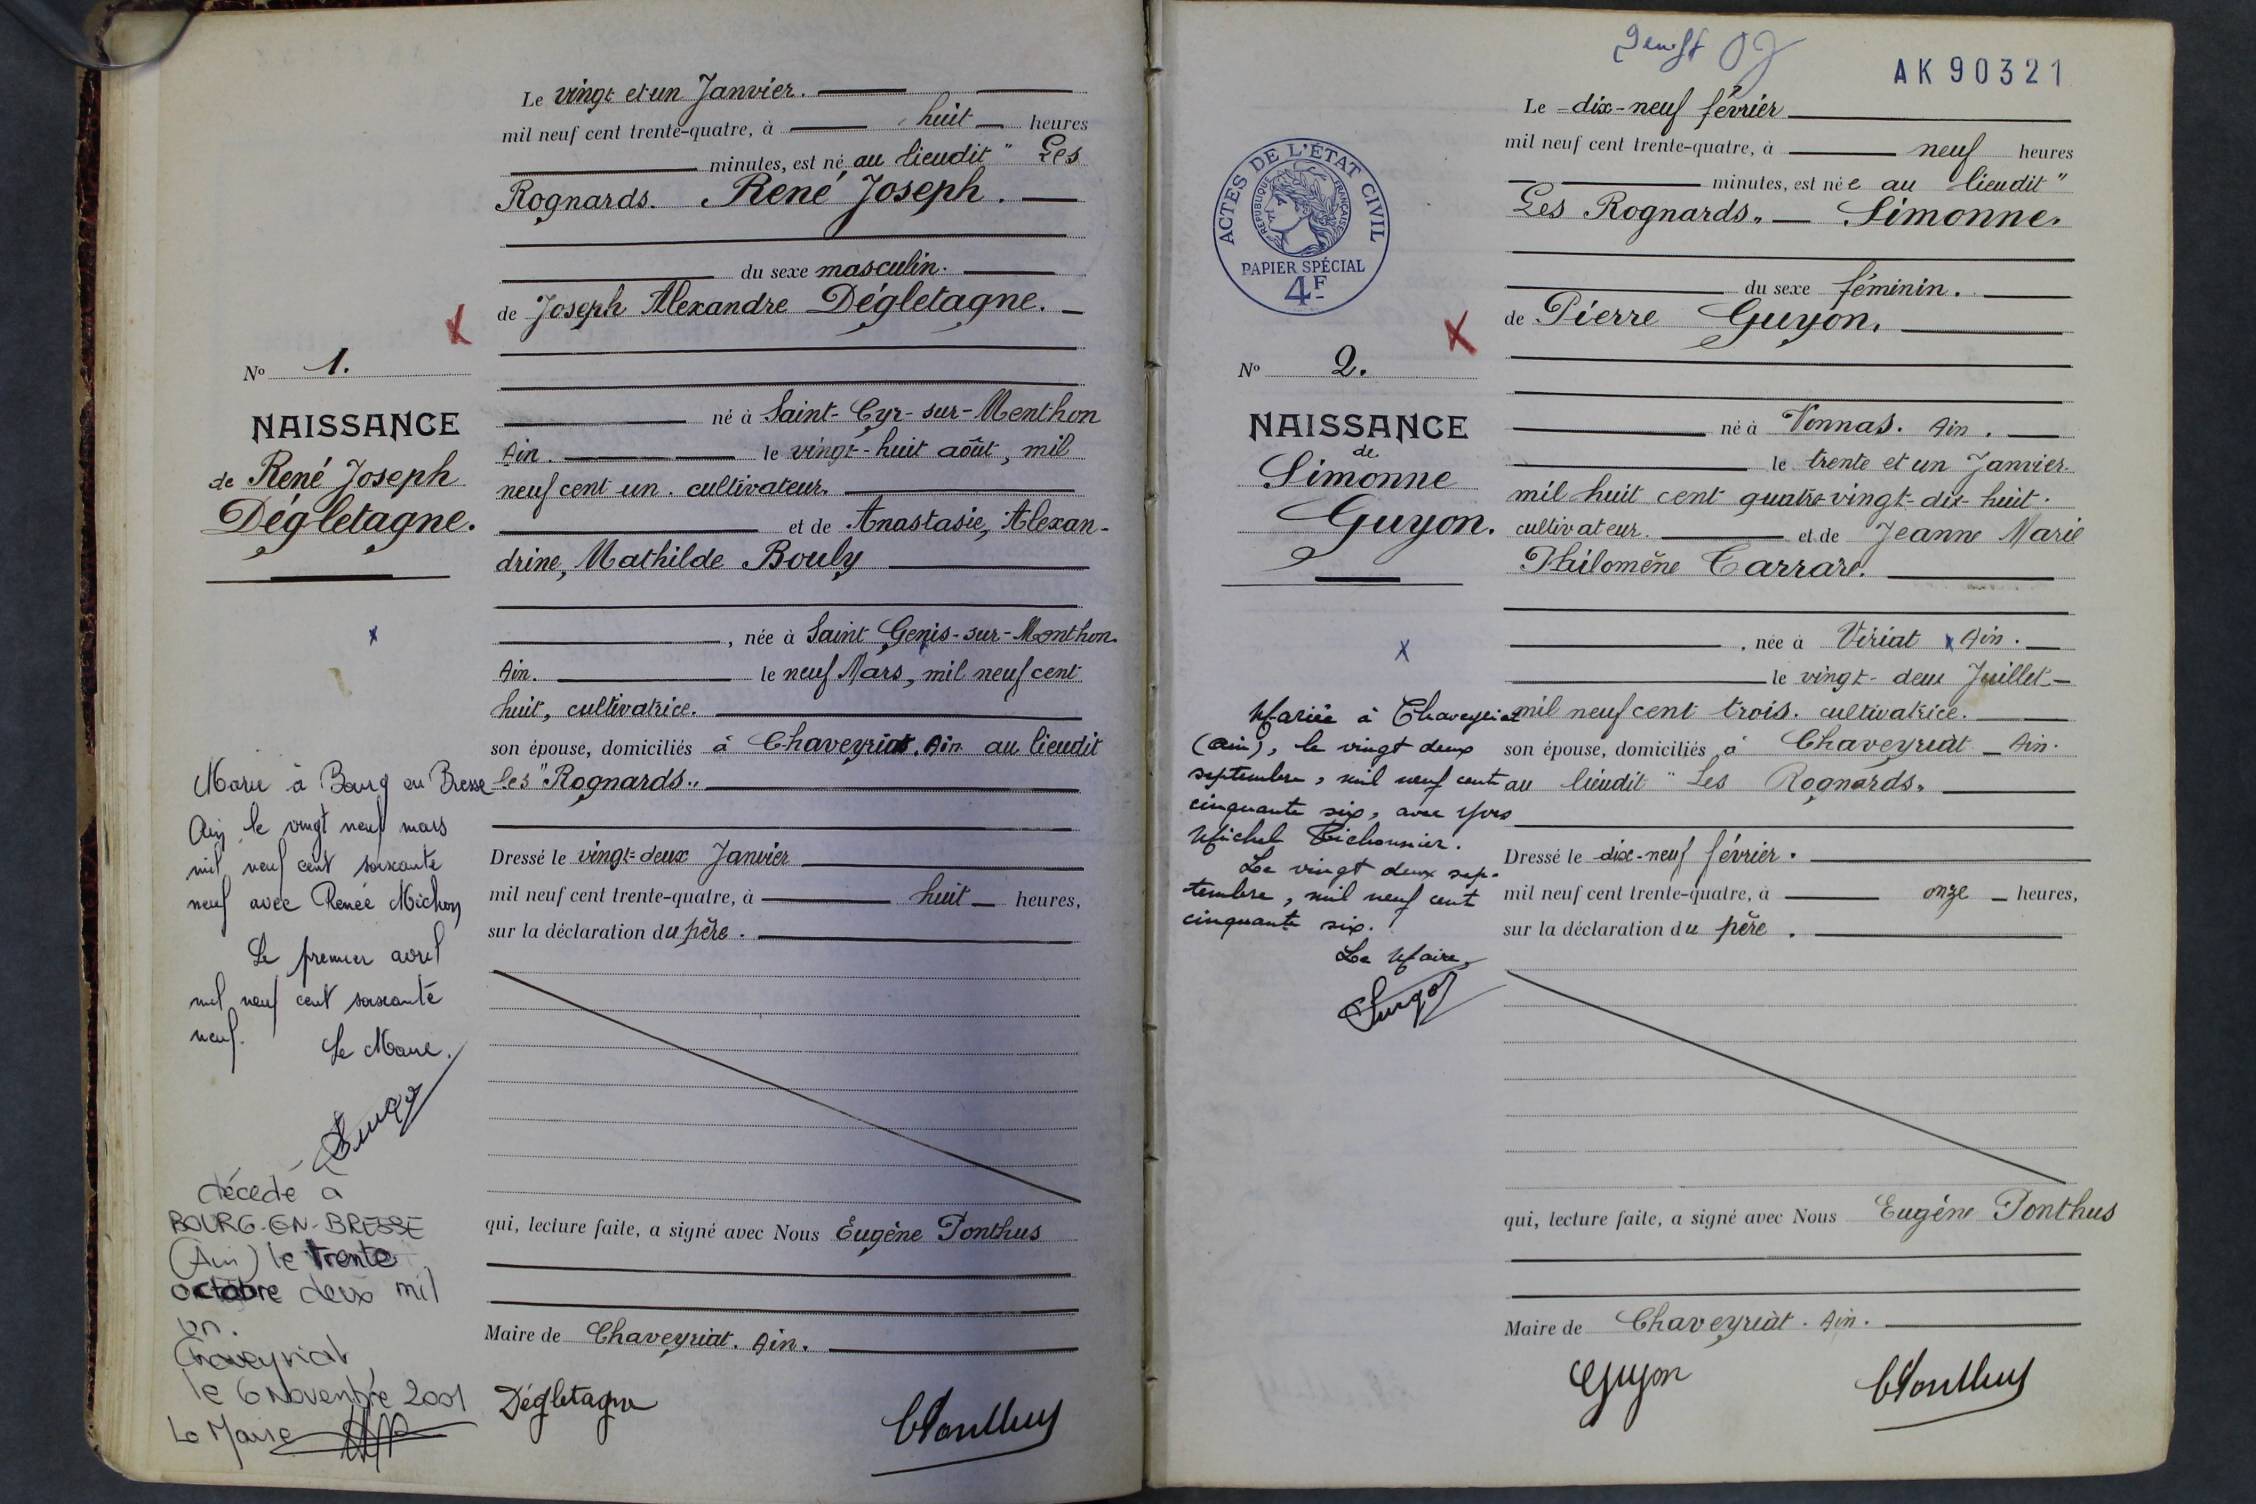 Le vingt et un Janvier.
mil neuf cent trente-quatre, à huit heures
minutes, est né au lieudit " Les
Rognards. René Joseph.
du sexe masculin.
de Joseph Alexandre Dégletagne.
N° 1.
NAISSANCE
de René Joseph
Dégletagne.
né à Saint-Cyr-sur-Menthon
Ain. le vingt-huit août, mil
neuf cent un. cultivateur.
et de Anastasie, Alexan-
drine, Mathilde Bouly
, née à Saint Genis-sur-Menthon.
Ain. le neuf Mars, mil neuf cent
huit, cultivatrice.
son épouse, domiciliés à Chaveyriat. Ain au lieudit
les "Rognards"
Dressé le vingt-deux Janvier
mil neuf cent trente-quatre, à huit heures,
sur la déclaration du père.
qui, lecture faite, a signé avec Nous Eugène Ponthus
Maire de Chaveyriat. Ain.
Dégletagne
Ponthus
Marié à Bourg en Bresse
Ain le vingt neuf mars
mil neuf cent soixante
neuf avec Renée Michon
Le premier avril
mil neuf cent soixante
neuf.
Le Maire.
décédé à
BOURG-EN-BRESSE
(Ain) le trente
octobre deux mil
un.
Chaveyriat
le 6 Novembre 2001
Le Maire
AK90321
ACTES DE L'ÉTAT CIVIL
RÉPUBLIQUE FRANÇAISE
PAPIER SPÉCIAL
4F
Le dix-neuf février
mil neuf cent trente-quatre, à neuf heures
minutes, est née au lieudit "
Les Rognards. Simonne.
du sexe féminin.
de Pierre Guyon.
N° 2.
NAISSANCE
de
Simonne
Guyon.
né à Vonnas. Ain.
le trente et un Janvier
mil huit cent quatre vingt-dix-huit.
cultivateur. et de Jeanne Marie
Philomène Carrare.
, née à Viriat Ain.
le vingt-deux Juillet
mil neuf cent trois. cultivatrice.
son épouse, domiciliés à Chaveyriat Ain.
au lieudit "Les Rognards.
Dressé le dix-neuf février.
mil neuf cent trente-quatre, à onze heures,
sur la déclaration du père.
qui, lecture faite, a signé avec Nous Eugène Ponthus
Maire de Chaveyriat. Ain.
Guyon
Ponthus
Mariée à Chaveyriat
(Ain), le vingt deux
septembre, mil neuf cent
cinquante six, avec Yves
Michel Bichonnier.
Le vingt deux sep-
tembre, mil neuf cent
cinquante six.
Le Maire,